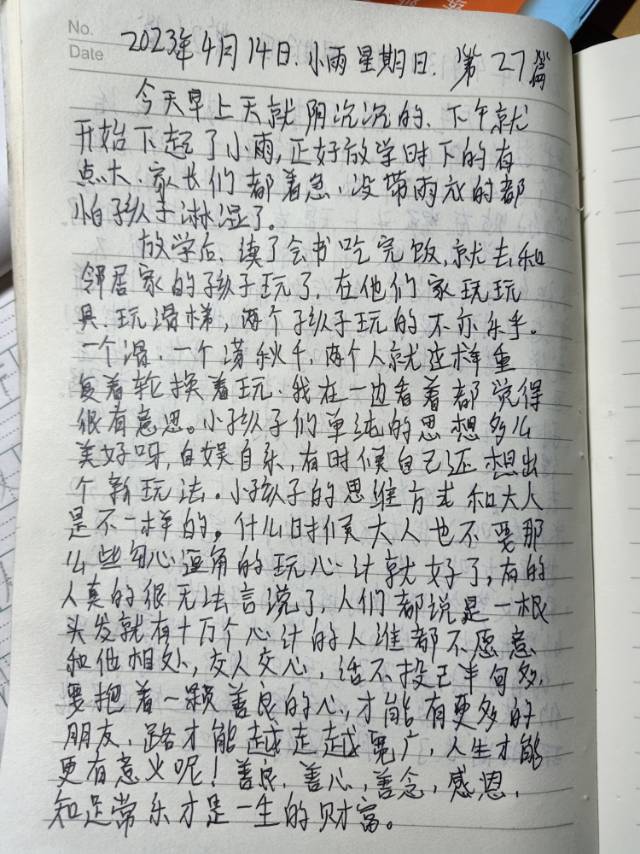 No.
Date
2023年4月14日.小雨星期日.第27篇
今天早上天就阴沉沉的、下午就
开始下起了小雨,正好放学时下的有
点大.家长们都着急.没带雨衣的都
怕孩子淋湿了。
放学后、读了会书吃完饭,就去和
邻居家的孩子玩了,在他们家玩玩
具.玩滑梯,两个孩子玩的不亦乐乎。
一个滑.一个荡秋千,两个人就这样重
复着轮换着玩.我在一边看着都觉得
很有意思。小孩子们单纯的思想多么
美好呀,自娱自乐,有时候自己还想出
个新玩法。小孩子的思维方式和大人
是不一样的。什么时候大人也不要那
么些勾心逗角的玩心计就好了,有的
人真的很无法言说了,人们都说是一根
头发就有十万个心计的人谁都不愿意
和他相处,交人交心,话不投己半句多,
要抱着一颗善良的心,才能有更多的
朋友,路才能越走越宽广,人生才能
更有意义呢!善良,善心,善念,感恩,
知足常乐才是一生的财富。